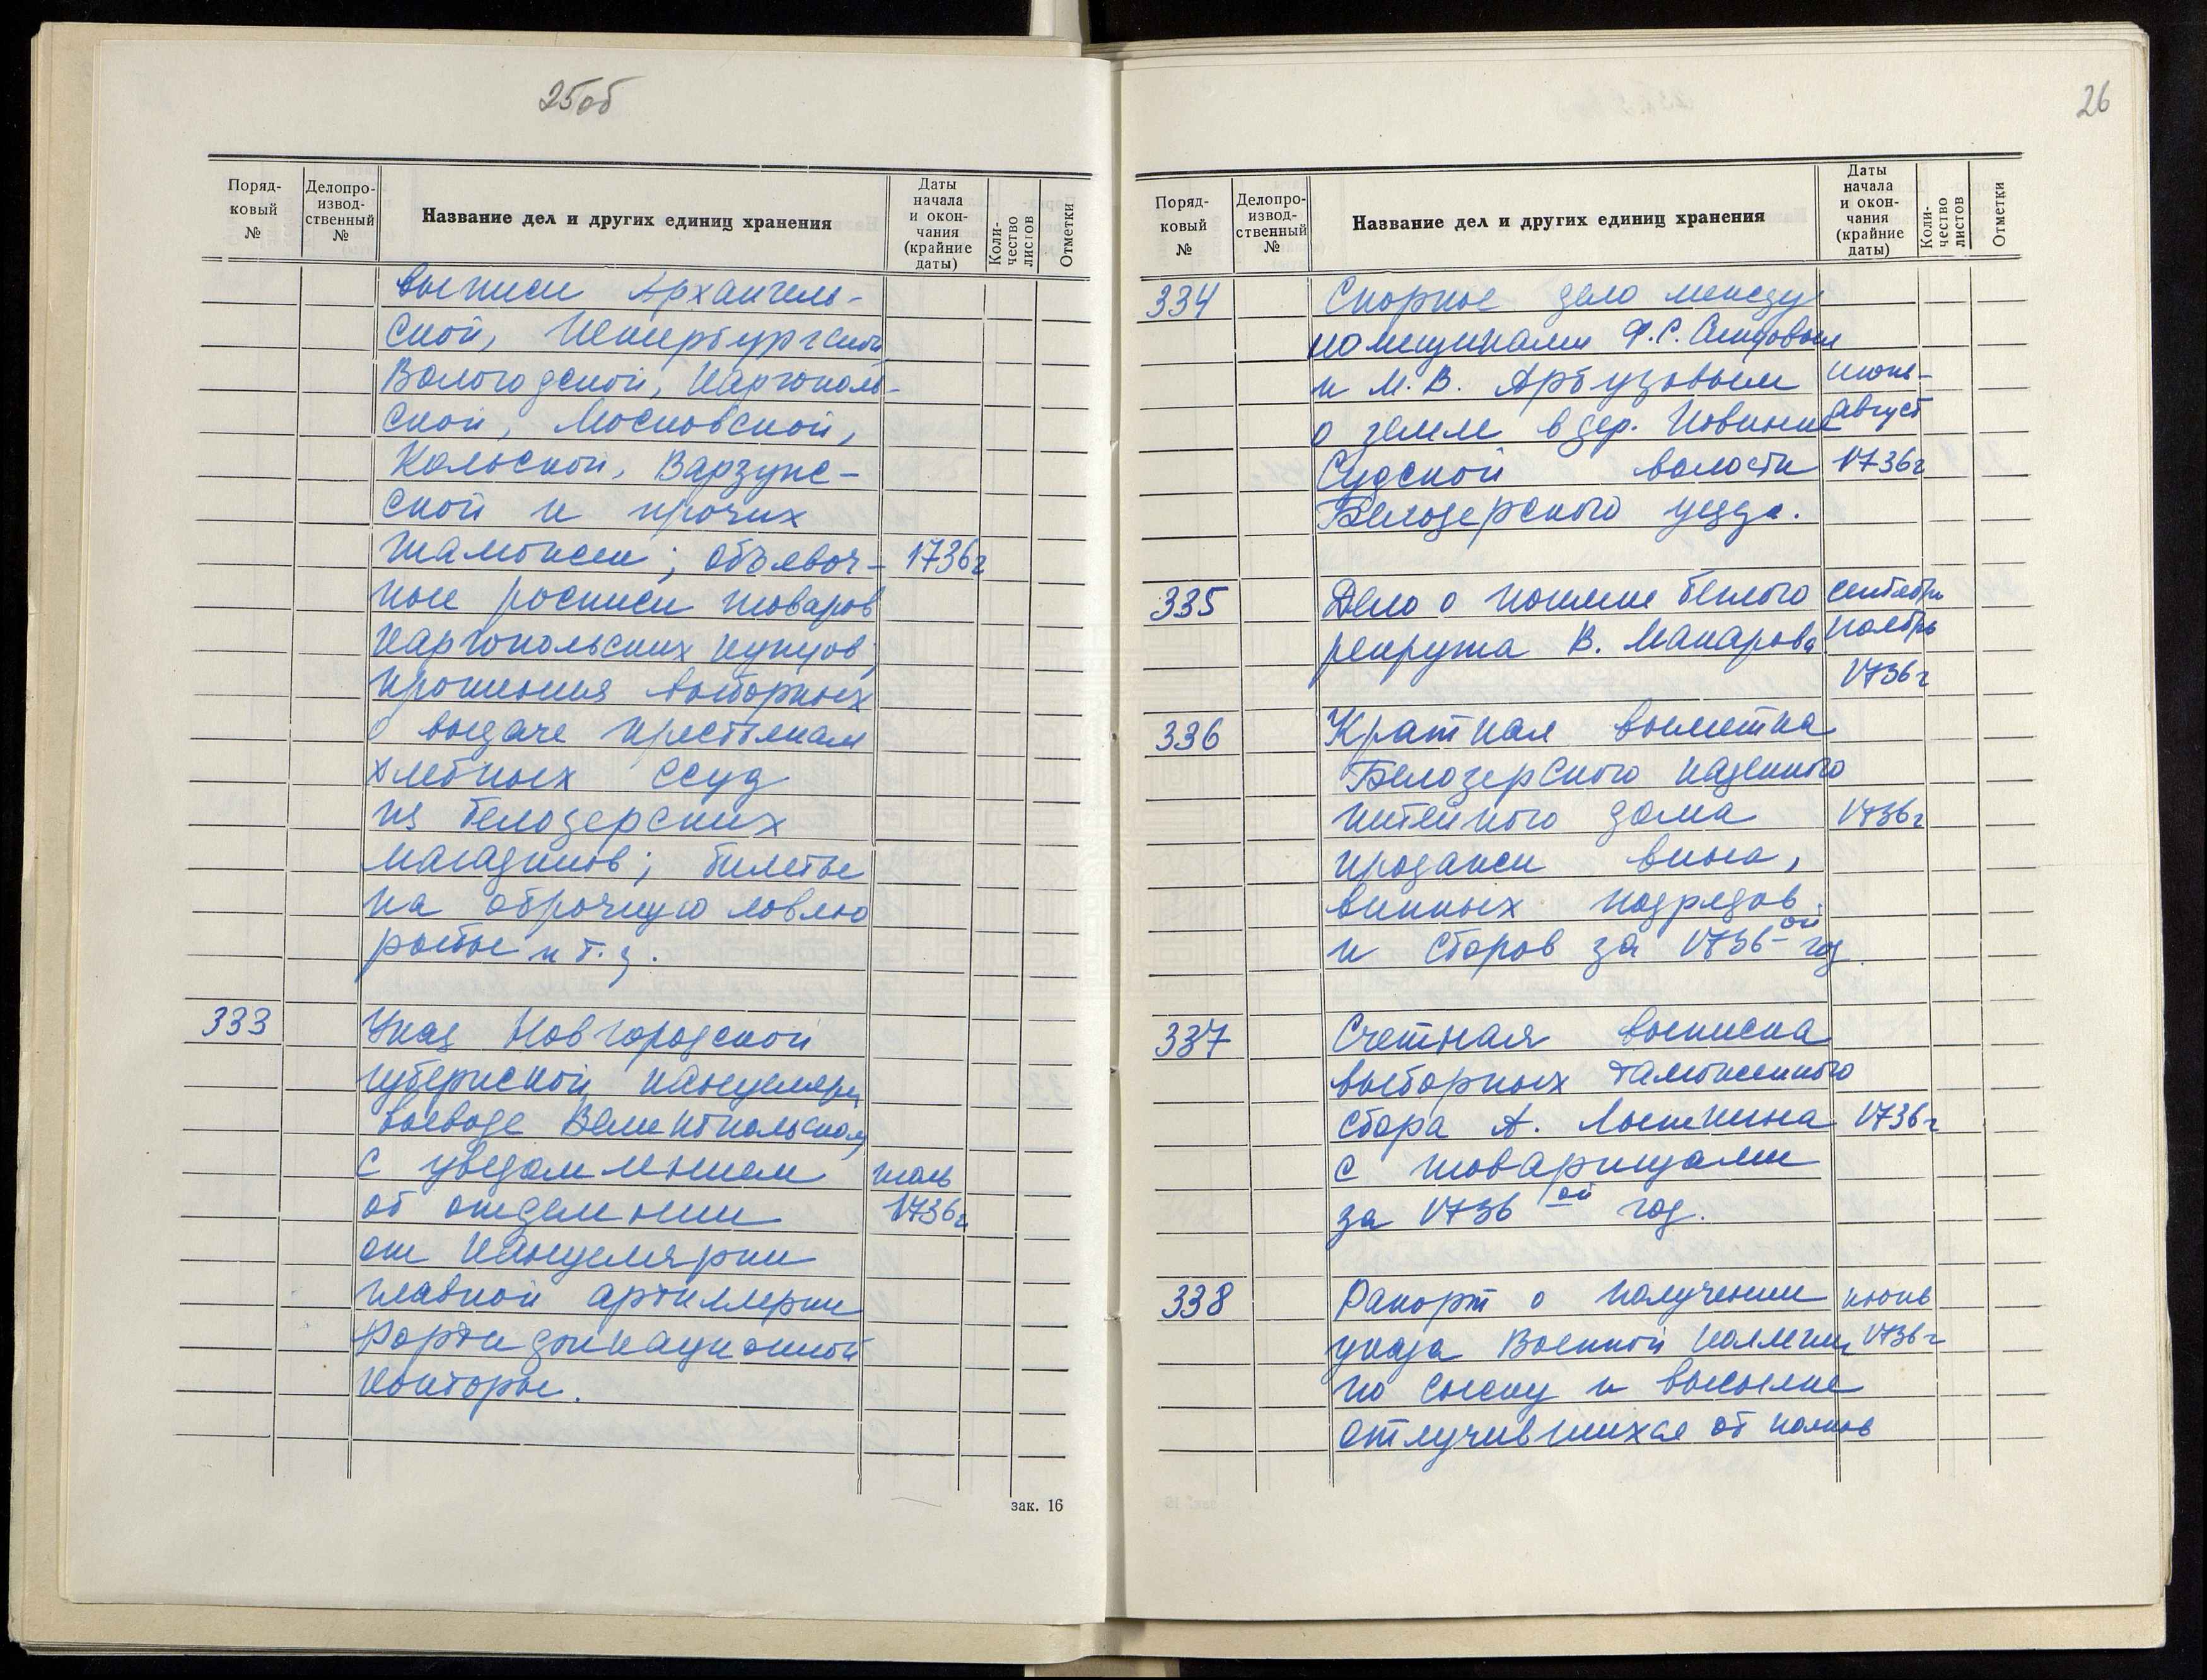 25об
Поряд-
ковый
№
Делопро-
извод-
ственный
№
Название дел и других единиц хранения
Даты
начала
и окон-
чания
(крайние
даты)
Коли-
чество
листов
Отметки
выписи Архангель-
ской,
Вологодской, Каргополь-
ской, Московской,
Кольской, Варзунс-
ской и прочих
таможен; объявоч- 1736г
ные росписи товаров
каргопольских купцов;
прошения выборных
о выдаче крестьянам
хлебных ссуд
из белозерских
магазинов; билеты
на оброчную ловлю
рыбы и т.д.
333 Указ Новгородской
губернской канцелярии
воеводе
с уведомлением
об отделении 1736г
от Канцелярии
главной артиллерии
Фортификационной
конторы.
зак. 16
26
Поряд-
ковый
№
Делопро-
извод-
ственный
№
Название дел и других единиц хранения
Даты
начала
и окон-
чания
(крайние
даты)
Коли-
чество
листов
Отметки
334 Спорное дело между
помещиками Ф.С.
и М.В. Арбузовым июнь-
о земле в дер. август
Судской волости 1736г
Белозерского уезда.
335 Дело о поимке беглого сентябрь
рекрута В. Макарова ноябрь
1736г
336 Краткая выметка
Белозерского казенного
питейного дома 1736г
продажи вина,
винных подрядов
и сборов за 1736-ой год.
337 Счетная выписка
выборных таможенного
сбора А. Лыткина 1736г
с товарищами
за 1736-ой год.
338 Рапорт о получении июнь
указа Военной Коллегии 1736г
по сыску и высылке
отлучившихся от полков